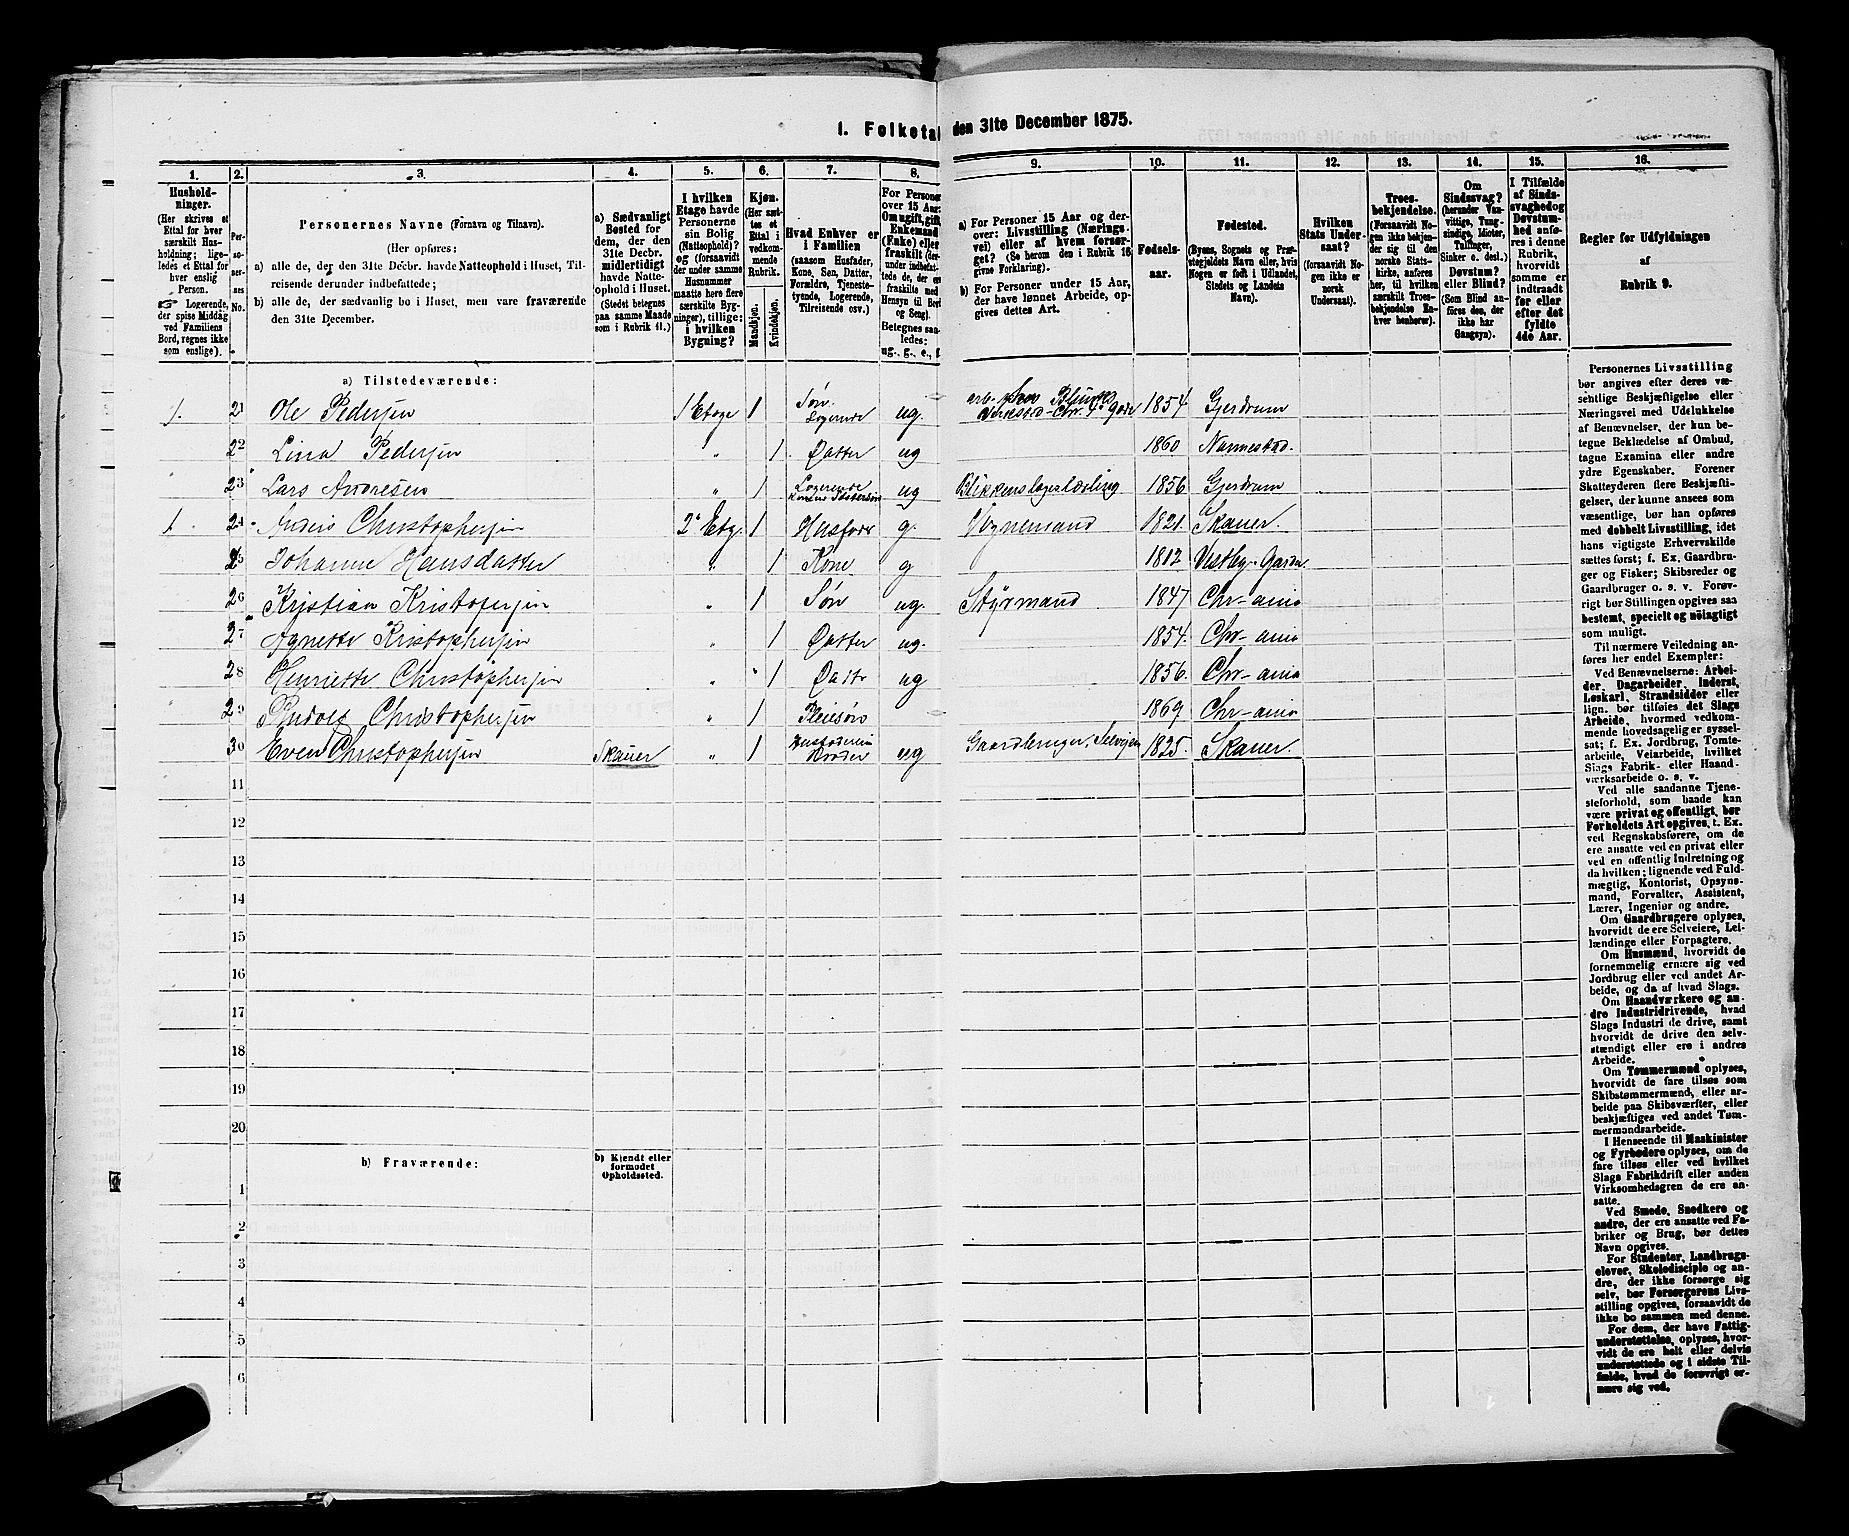 1. Folketal den 31te December 1875.
1. 2. 3. 4. 5. 6. 7. 8. 9. 10. 11. 12. 13. 14. 15. 16.
Hushold-
ninger.
(Her skrives et
Ettal for hver
særskilt Hus-
holdning; lige-
ledes et Ettal for
hver enslig
Person.
☞ Logerende,
der spise Middag
ved Familiens
Bord, regnes ikke
som enslige).
Per-
so-
ner-
nes
No.
Personernes Navne (Fornavn og Tilnavn).
(Her opføres:
a) alle de, der den 31te Decbr. havde Natteophold i Huset, Til-
reisende derunder indbefattede;
b) alle de, der sædvanlig bo i Huset, men vare fraværende
den 31te December.
a) Sædvanligt
Bosted for
dem, der den
31te Decbr.
midlertidigt
havde Natte-
ophold i Huset.
(Stedet betegnes
paa samme Maade
som i Rubrik 11.)
I hvilken
Etage havde
Personerne
sin Bolig
(Natteophold)?
og (forsaavidt
der under samme
Husnummer
maatte høre flere
særskilte Byg-
ninger), tillige:
i hvilken
Bygning?
Kjøn.
(Her sæt-
tes et
Ettal i
vedkom-
mende
Rubrik.
Mandkjøn.
Kvindekjøn.
Hvad Enhver er
i Familien
(saasom Husfader,
Kone, Søn, Datter,
Forældre, Tjeneste-
tyende, Logerende,
Tilreisende osv.)
For Personer
over 15 Aar:
Om ugift, gift,
Enkemand
(Enke) eller
fraskilt (der-
under indbefat-
tede de, der ere
fraskilte med
Hensyn til Bord
og Seng).
Betegnes saa-
ledes:
ug., g., e., f.
a) For Personer 15 Aar og der-
over: Livsstilling (Nærings-
vei) eller af hvem forsør-
get? (Se herom den i Rubrik 16
givne Forklaring).
b) For Personer under 15 Aar,
der have lønnet Arbeide, op-
gives dettes Art.
Fødsels-
aar.
Fødested.
(Byens, Sognets og Præ-
stegjeldets Navn eller, hvis
Nogen er født i Udlandet,
Stedets og Landets
Navn).
Hvilken
Stats Under-
saat?
(forsaavidt No-
gen ikke er
norsk
Undersaat).
Troes-
bekjendelse.
(Forsaavidt No-
gen ikke bekjen-
der sig til den
norske Stats-
kirke, anføres
her, til hvilken
særskilt Troes-
bekjendelse En-
hver henhører).
Om
Sindssvag?
(herunder Van-
vittige, Tung-
sindige, Idioter,
Tullinger,
Sinker o. desl.)
Døvstum?
eller Blind?
(Som Blind an-
føres den, der
ikke har
Gangsyn).
I Tilfælde
af Sinds-
svaghed og
Døvstum-
hed anfø-
res i denne
Rubrik,
hvorvidt
samme er
indtraadt
før eller
efter det
fyldte
4de Aar.
Regler for Udfyldningen
af
Rubrik 9.
a) Tilstedeværende:
1. 21 Ole Pedersen 1 Etage 1 Søn. Logerende ug. 1854 Gjerdrum
22 Lina Pedersen " 1 Datter ug 1860 Nannestad.
23 Lars Andresen " 1 Logerende Konens Søstersøn ug Blikkenslagerlærling 1856 Gjerdrum
1. 24 Anders Christophersen 2 Etg. 1 Husfader g. Vognemand 1821. Skauer.
25 Johanne Hansdatter " 1 Kone g 1812 Vestby
26 Kristian Kristofersen " 1 Søn ug. Styrmand 1847 Chr-ania
27 Agnette Kristophersen " 1 Datter ug. 1854. Chr-ania
28 Henriette Christophersen " 1 Dattr ug 1856. Chr-ania
29 Rudolf Christophersen " 1 Pleiesøn 1869. Chr-ania
30 Even Christophersen Skauer " 1 Husfaderen Broder ug Gaardbruger, Selvejer 1825. Skauer.
11
12
13
14
15
16
17
18
19
20
b) Fraværende:
b) Kjendt eller
formodet
Opholdssted.
1
2
3
4
5
6
Personernes Livsstilling
bør angives efter deres væ-
sentlige Beskjæftigelse eller
Næringsvei med Udelukkelse
af Benævnelser, der kun be-
tegne Beklædelse af Ombud,
tagne Examina eller andre
ydre Egenskaber. Forener
Skatteyderen flere Beskjæfti-
gelser, der kunne ansees som
væsentlige, bør han opføres
med dobbelt Livsstilling, idet
hans vigtigste Erhvervskilde
sættes først; f. Ex. Gaardbru-
ger og Fisker; Skibsreder og
Gaardbruger o. s. v. Forøv-
rigt bør Stillingen opgives saa
bestemt, specielt og nøiagtigt
som muligt.
Til nærmere Veiledning an-
føres her endel Exempler:
Ved Benævnelserne: Arbei-
der, Dagarbeider, Inderst,
Løskarl, Strandsidder eller
lign. bør tilføies det Slags
Arbeide, hvormed vedkom-
mende hovedsagelig er syssel-
sat; f. Ex. Jordbrug, Tomte-
arbeide, Veiarbeide, hvilket
Slags Fabrik- eller Haand-
værksarbeide o. s. v.
Ved alle saadanne Tjene-
steforhold, som baade kan
være privat og offentligt, bør
Forholdets Art opgives, t. Ex.
ved Regnskabsførere, om de
ere ansatte ved en privat eller
ved en offentlig Indretning og
da hvilken; lignende ved Fuld-
mægtig, Kontorist, Opsyns-
mand, Forvalter, Assistent,
Lærer, Ingeniør og andre.
Om Gaardbrugere oplyses,
hvorvidt de ere Selveiere, Lei-
lændinge eller Forpagtere.
Om Husmænd, hvorvidt de
fornemmelig ernære sig ved
Jordbrug eller ved andet Ar-
beide, og da af hvad Slags.
Om Haandværkere og an-
dre Industridrivende, hvad
Slags Industri de drive, samt
hvorvidt de drive den selv-
stændigt eller ere i andres
Arbeide.
Om Tømmermænd oplyses,
hvorvidt de fare tilsøs som
Skibstømmermænd, eller ar-
beide paa Skibsværfter, eller
beskjæftiges ved andet Tøm-
mermandsarbeide.
I Henseende til Maskinister
og Fyrbødere oplyses, om de
fare tilsøs eller ved hvilket
Slags Fabrikdrift eller anden
Virksomhedsgren de ere an-
satte.
Ved Smede, Snedkere og
andre, der ere ansatte ved Fa-
briker og Brug, bør dettes
Navn opgives.
For Studenter, Landbrugs-
elever, Skoledisciple og an-
dre, der ikke forsørge sig
selv, bør Forsørgerens Livs-
stilling opgives, forsaavidt de
ikke bo sammen med denne.
For dem, der have Fattig-
understøttelse, oplyses, hvor-
vidt de ere helt eller delvis
understøttede og i sidste Til-
fælde, hvad de forøvrigt er-
nære sig ved.